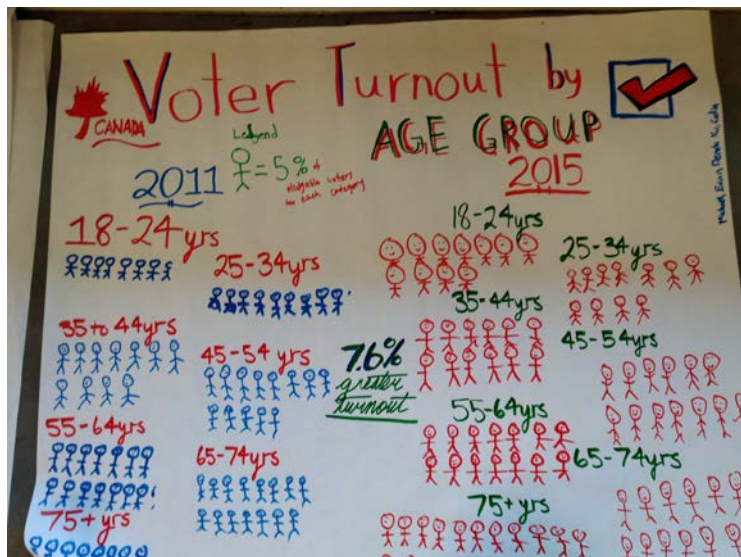 Voter Turnout by
AGE GROUP
CANADA
Ledgend
= 5% of
eligable voters
for each category
2011
18-24yrs
25-34yrs
35 to 44yrs
45-54 yrs
55-64yrs
65-74yrs
75+ yrs
7.6%
greater
turnout
2015
18-24yrs
25-34yrs
35-44yrs
45-54yrs
55-64yrs
65-74yrs
75+yrs